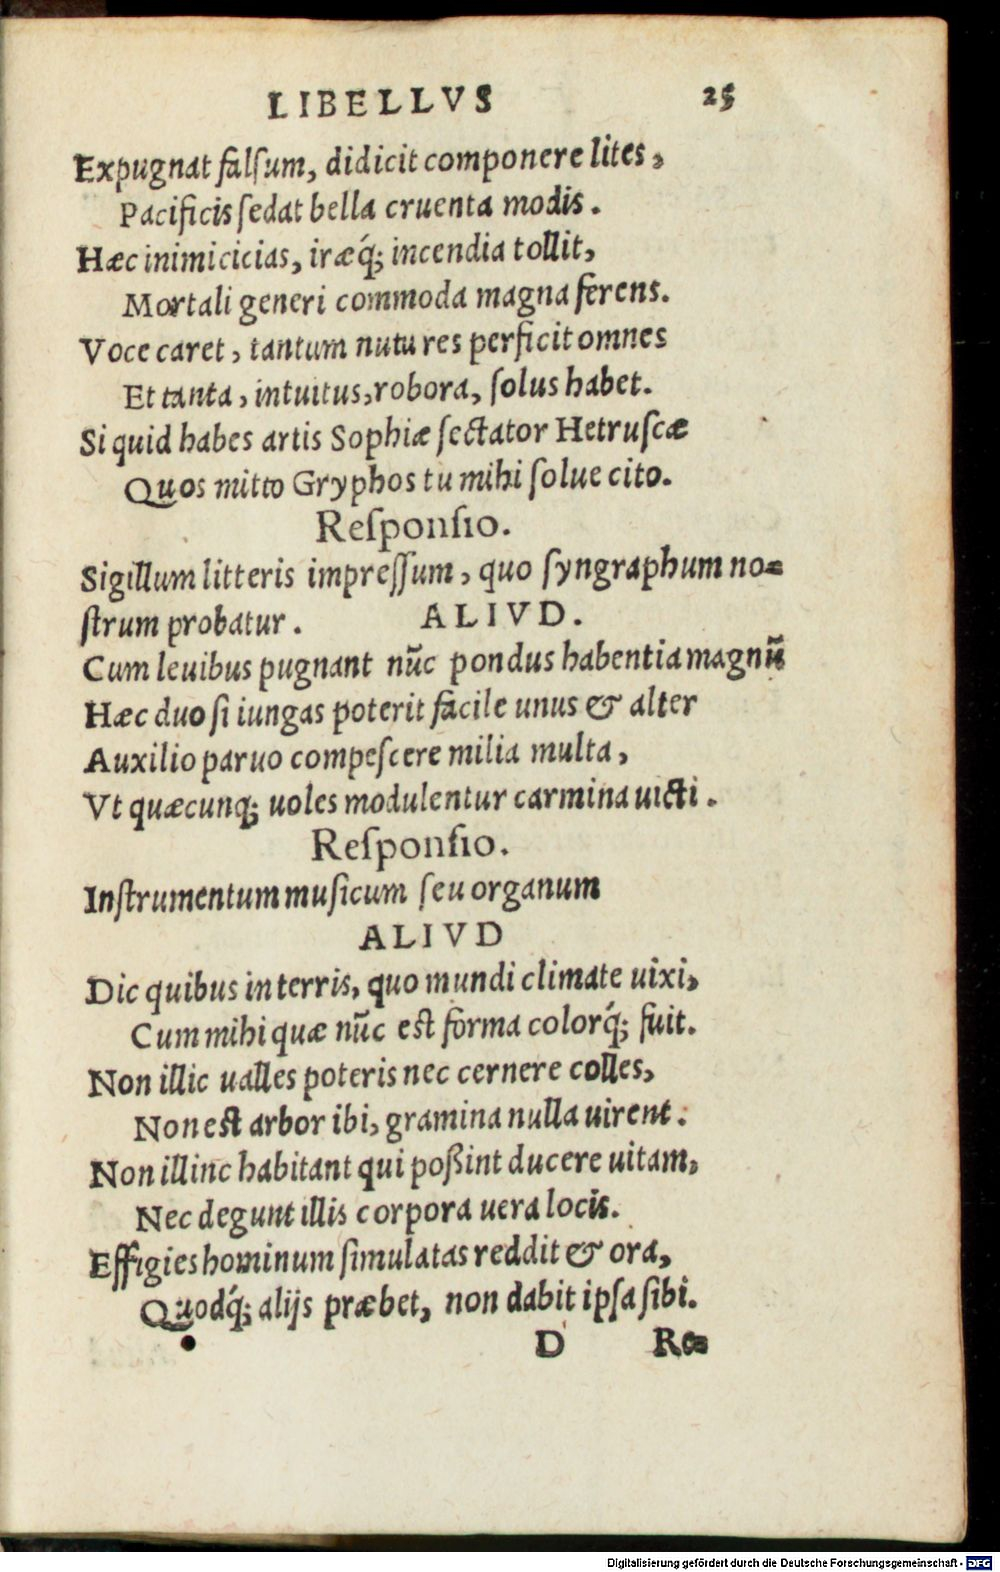 LIBELLVS 25
Expugnat falſum, didicit componere lites,
Pacificis ſedat bella cruenta modis.
Hæc inimicicias, iræq́; incendia tollit,
Mortali generi commoda magna ferens.
Voce caret, tantum nutu res perficit omnes
Et tanta, intuitus, robora, ſolus habet.
Si quid habes artis Sophiæ ſectator Hetruſcæ
Quos mitto Gryphos tu mihi ſolue cito.
Reſponſio.
Sigillum litteris impreſſum, quo ſyngraphum no=
ſtrum probatur. ALIVD.
Cum leuibus pugnant nūc pondus habentia magnū
Hæc duo ſi iungas poterit facile unus & alter
Auxilio paruo compeſcere milia multa,
Vt quæcunq; uoles modulentur carmina uicti.
Reſponſio.
Inſtrumentum muſicum ſeu organum
ALIVD
Dic quibus in terris, quo mundi climate uixi,
Cum mihi quæ nūc eſt forma colorq́; fuit.
Non illic ualles poteris nec cernere colles,
Non eſt arbor ibi, gramina nulla uirent.
Non illinc habitant qui poßint ducere uitam,
Nec degunt illis corpora uera locis.
Effigies hominum ſimulatas reddit & ora,
Quodq́; alijs præbet, non dabit ipſa ſibi.
D Re=
Digitalisierung gefördert durch die Deutsche Forschungsgemeinschaft - DFG